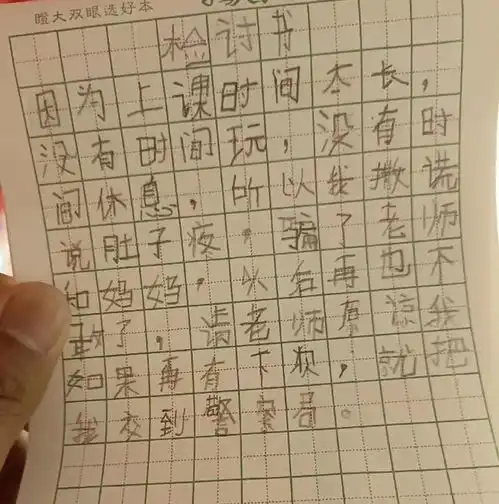 瞪大双眼选好本
检讨书
因为上课时间太长，
没有时间玩，没有时
间休息，所以我撒谎
说肚子疼，骗了老师
和妈妈，以后再也不
敢了，请老师原谅我
如果再有下次，就把
我交到警察局。